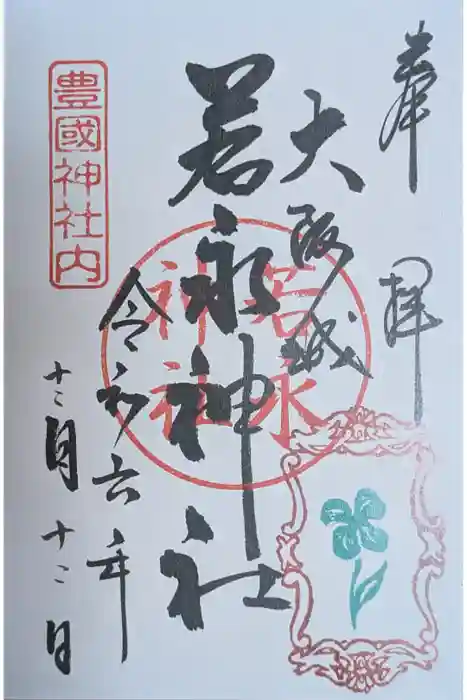 奉拝
大阪城
若永神社
若永神社
令和六年
十二月十二日
豊國神社内